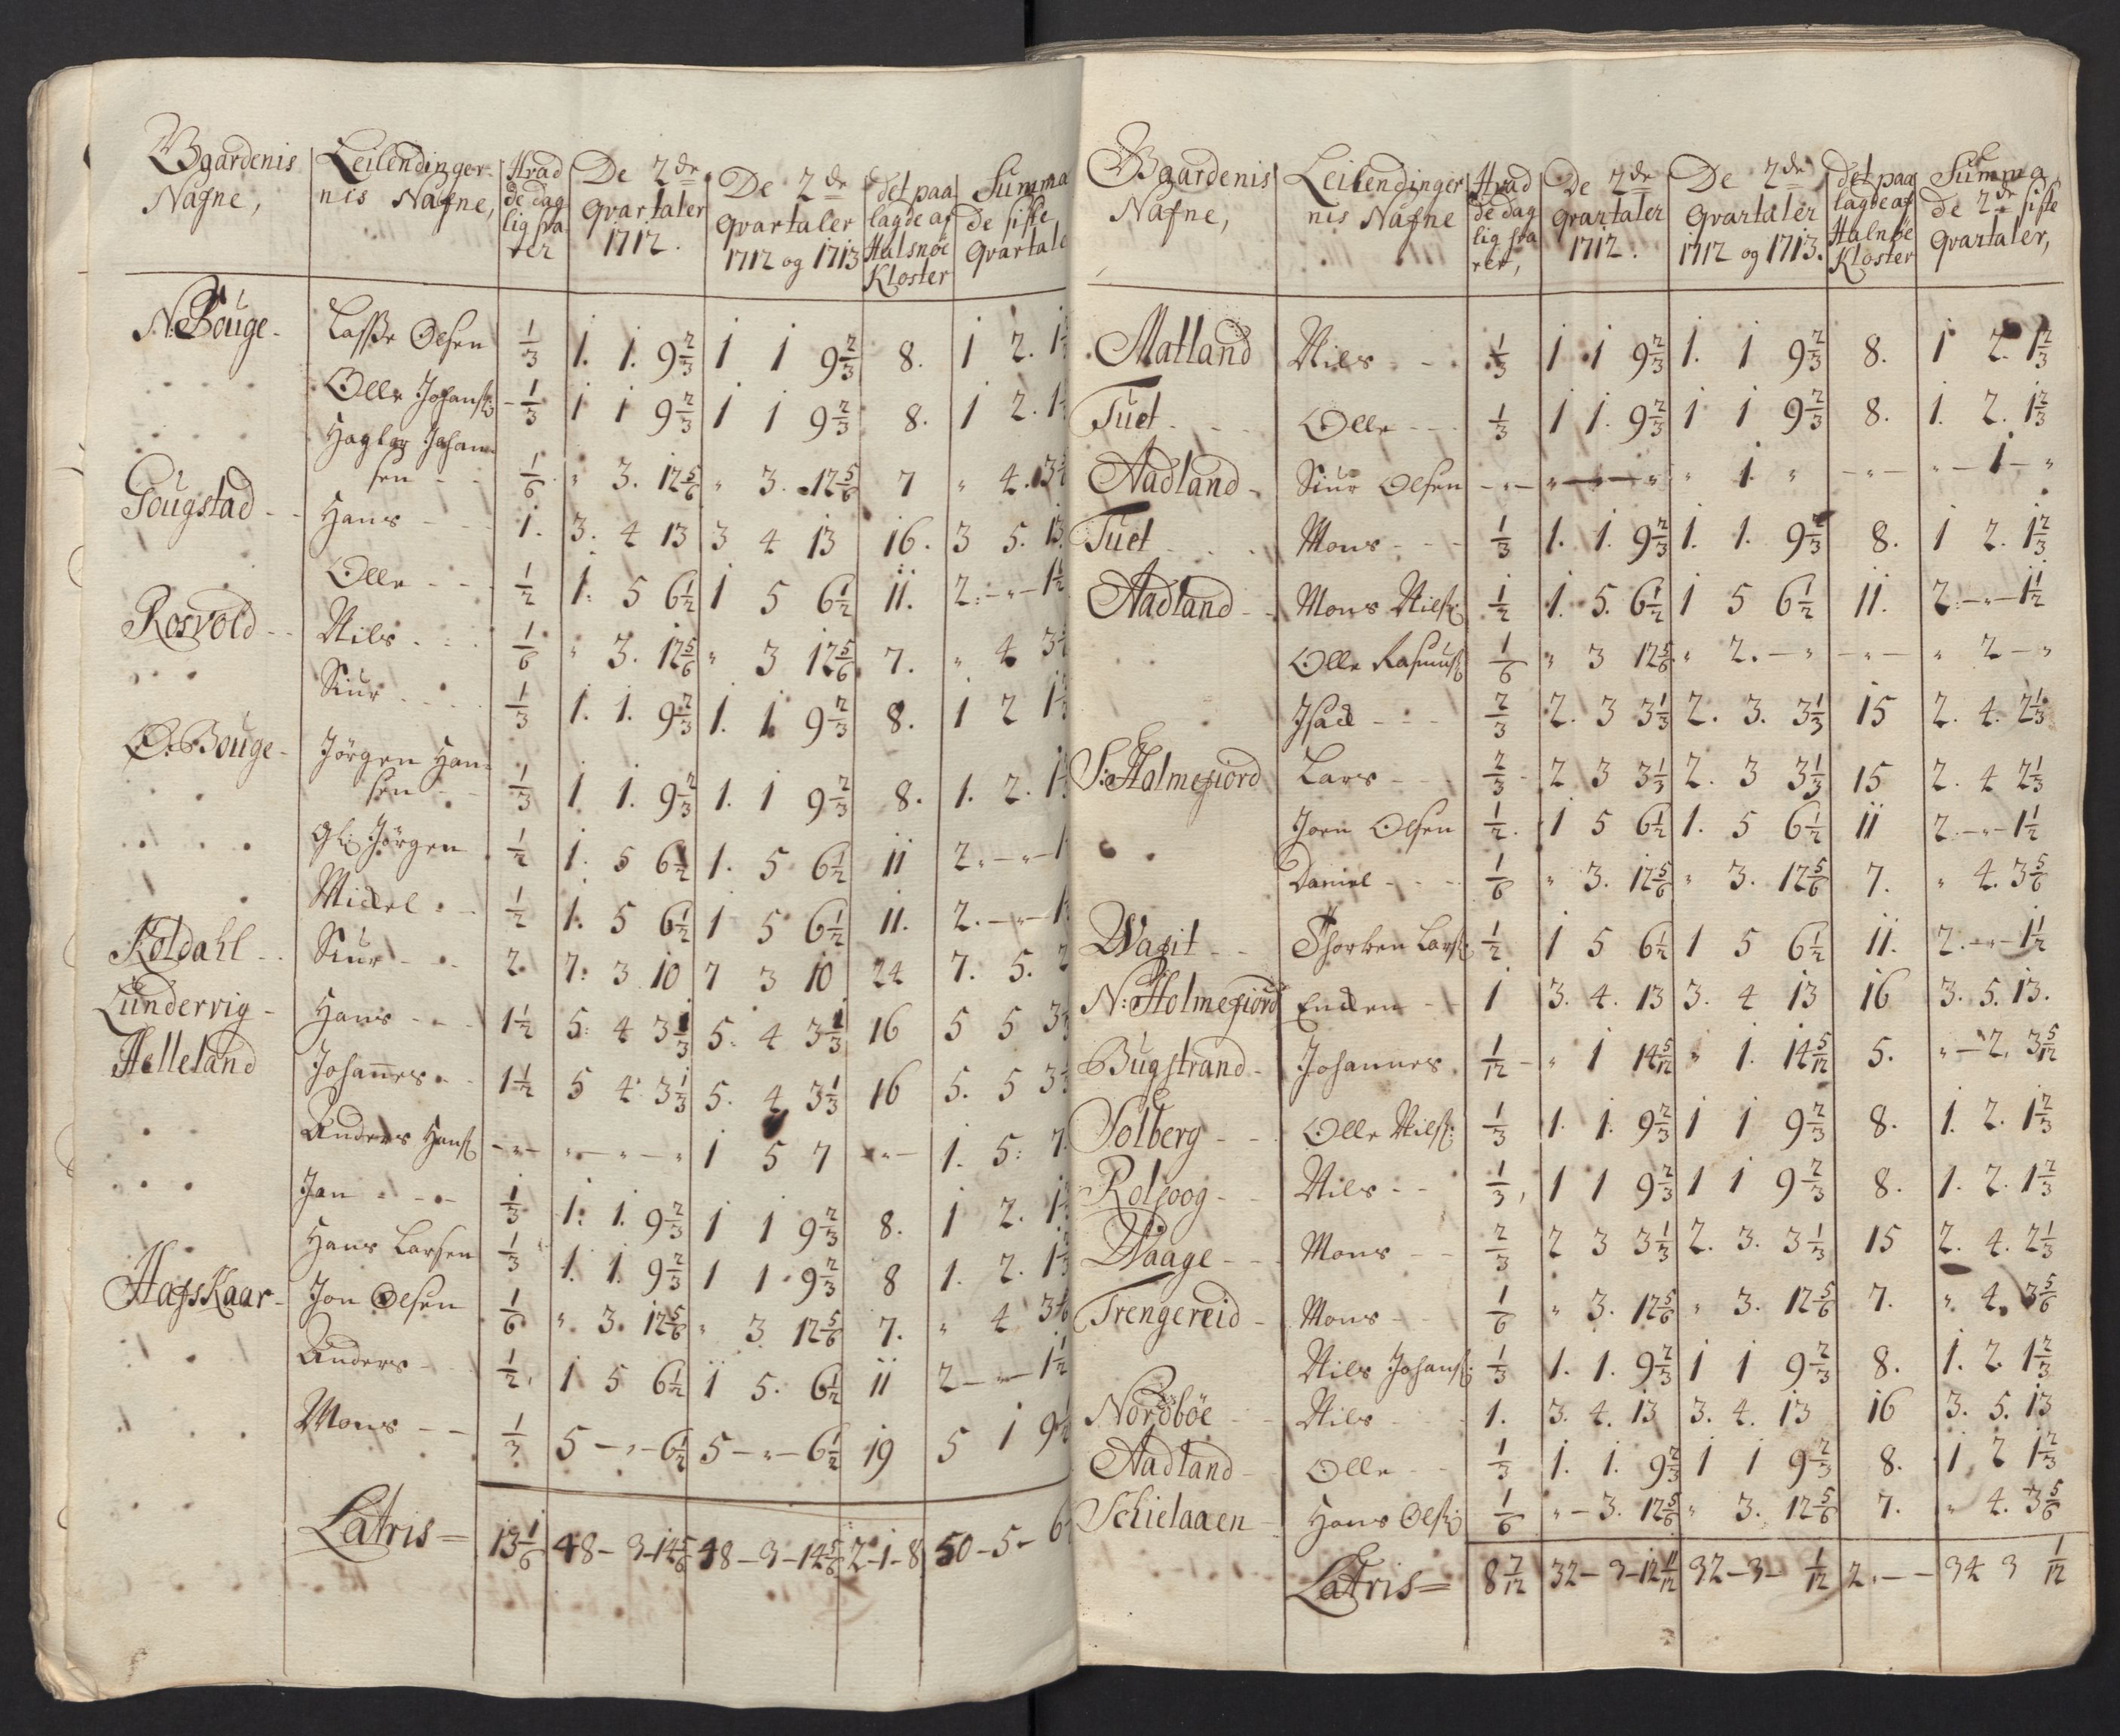 Bgaardenis Nafne, | Leilendinger- nis Nafne, | Hvad de dag lig sva rer | De 2de qvartaler 1712. | De 2de qvartaler 1712 og 1713 | det paa lagde af Halsnöe Kloster | Summa de siste qvartale
N. Bouge - | Lasse Olsen | 1/3 | 1. 1. 9 2/3 | 1 1 9 2/3 | 8. | 1 2. 1
Olle Johans: | 1/3 | 1 1 9 2/3 | 1 1 9 2/3 | 8. | 1 2. 1
Haglog Johan=
sen - - | 1/6 | " 3. 12 5/6 | " 3. 12 5/6 | 7 | " 4. 3
Gougstad - - | Hans - - - | 1. | 3. 4 13 | 3 4 13 | 16. | 3 5. 13
Olle - - - | 1/2 | 1: 5 6 1/2 | 1 5 6 1/2 | 11. | 2: - " - 1 1/2
Rosvold - - | Nils - - - | 1/6 | " 3. 12 5/6 | " 3 12 5/6 | 7. | " 4 3
Siur - - - | 1/3 | 1. 1. 9 2/3 | 1. 1 9 2/3 | 8. | 1 2 1
Ö. Bouge - | Jörgen Han=
sen - - | 1/3 | 1 1. 9 2/3 | 1. 1 9 2/3 | 8. | 1. 2. 1
Gl: Jörgen | 1/2 | 1. 5 6 1/2 | 1. 5 6 1/2 | 11 | 2. - " - 1
Mickel - - | 1/2 | 1. 5 6 1/2 | 1 5 6 1/2 | 11. | 2. - " - 1
Koldahl - - | Siur - - - | 2 | 7: 3 10 | 7 3 10 | 24 | 7. 5. 2
Lundervig - | Hans - - - | 1 1/2 | 5: 4 3 1/3 | 5: 4 3 1/3 | 16 | 5 5 3
Helleland | Johannes - - | 1 1/2 | 5 4 3 1/3 | 5. 4 3 1/3 | 16 | 5. 5 3
Anders Hans: | - " - | " - " - " | 1 5 7 | - " - | 1. 5: 7.
Jan - - - | 1/3 | 1: 1. 9 2/3 | 1 1 9 2/3 | 8. | 1 2. 1
Hans Larsen | 1/3 | 1. 1. 9 2/3 | 1 1 9 2/3 | 8 | 1. 2. 1
Hafskaar - | Jon Olsen | 1/6 | " 3. 12 5/6 | " 3 12 5/6 | 7. | " 4 3
Anders - - | 1/2 | 1 5 6 1/2 | 1 5. 6 1/2 | 11 | 2 - " - 1 1/2
Mons - - | 1/3 | 5 - " - 6 1/2 | 5 - " - 6 1/2 | 19 | 5 1 9
Latris = | 13 1/6 | 48 - 3 - 14 5/6 | 48 - 3 - 14 5/6 | 2 - 1 - 8 | 50 - 5 - 6
Bgaardenis Nafne, | Leilendinger nis Nafne | Hvad de dag lig sva rer, | De 2de qvartaler 1712. | De 2de qvartaler 1712 og 1713. | det paa lagde af Halnöe Kloster | Summa de 2de siste qvartaler,
Matland | Nils - - - | 1/3 | 1 1 9 2/3 | 1. 1 9 2/3 | 8. | 1 2. 1 2/3
Tuet - - - | Olle - - - | 1/3 | 1 1. 9 2/3 | 1 1 9 2/3 | 8. | 1. 2. 1 2/3
Aadland - | Siur Olsen | - " - | " - " - " | " 1. " | - " - | " - 1 - "
Tuet - - - | Mons - - - | 1/3 | 1. 1. 9 2/3 | 1. 1. 9 2/3 | 8. | 1 2. 1 2/3
Aadland - - | Mons Nils: | 1/2 | 1. 5. 6 1/2 | 1 5 6 1/2 | 11. | 2. - " - 1 1/2
Olle Rasmus: | 1/6 | " 3 12 5/6 | " 2. - " | - " - | " 2 - "
Isack - - - | 2/3 | 2. 3 3 1/3 | 2. 3. 3 1/3 | 15 | 2. 4. 2 1/3
S: Holmefiord | Lars - - - | 2/3 | 2 3 3 1/3 | 2. 3 3 1/3 | 15 | 2. 4 2 1/3
Joen Olsen | 1/2 | 1 5 6 1/2 | 1. 5 6 1/2 | 11 | 2. - " - 1 1/2
Daniel - - - | 1/6 | " 3. 12 5/6 | " 3. 12 5/6 | 7. | " 4. 3 5/6
Wagit - - | Thorben Lars: | 1/2 | 1 5 6 1/2 | 1 5 6 1/2 | 11. | 2. - " - 1 1/2
N: Holmefiord | Endren - - | 1 | 3. 4. 13 | 3. 4 13 | 16 | 3. 5. 13.
Bugstrand - | Johannes. | 1/12 | " 1 14 5/12 | " 1. 14 5/12 | 5. | " - 2, 3 5/12
Solberg - - | Olle Nils: | 1/3 | 1. 1. 9 2/3 | 1 1 9 2/3 | 8. | 1. 2. 1 2/3
Rolfoog - - | Nils - - | 1/3 | 1 1 9 2/3 | 1 1 9 2/3 | 8. | 1. 2. 1 2/3
Waage - - - | Mons - - | 2/3 | 2 3 3 1/3 | 2. 3. 3 1/3 | 15 | 2. 4. 2 1/3
Trengereid - | Mons - - | 1/6 | " 3. 12 5/6 | " 3. 12 5/6 | 7. | " 4. 3 5/6
Nils Johans: | 1/3 | 1. 1. 9 2/3 | 1 1 9 2/3 | 8. | 1. 2. 1 2/3
Nordböe - - | Nils - - - | 1. | 3. 4. 13 | 3. 4. 13 | 16 | 3. 5. 13
Aadland - | Olle - - | 1/3 | 1. 1. 9 2/3 | 1 1 9 2/3 | 8. | 1 2 1 2/3
Schielaaen - | Hans Ols: | 1/6 | " - 3. 12 5/6 | " 3. 12 5/6 | 7. | " 4. 3 5/6
Latris = | 8 7/12 | 32 - 3 - 12 11/12 | 32 - 3 - 1/12 | 2. - - | 34 3 1/12